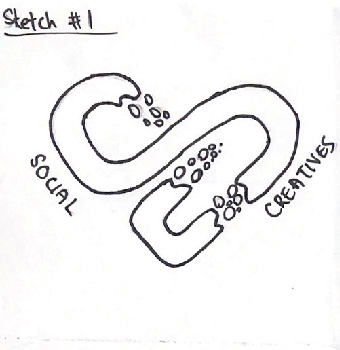 Sketch #1
SOCIAL
CREATIVES